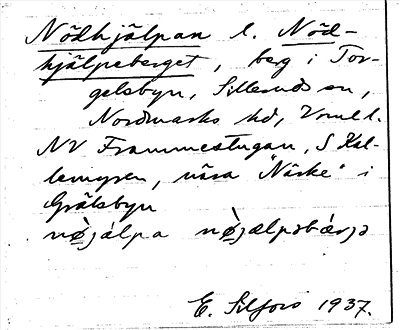 Nödhjälpan l. Nöd-
hjälpeberget, berg i Tor-
gelsbyn, Sillerud sn,
Nordmarks hd, Vrml.
NV Frammestugan, S Kal-
lemyren, nära "Närke" i
Gräsbyn
nø̀jálpa nø̀jælpəbǽrjə
E. Silfors 1937.